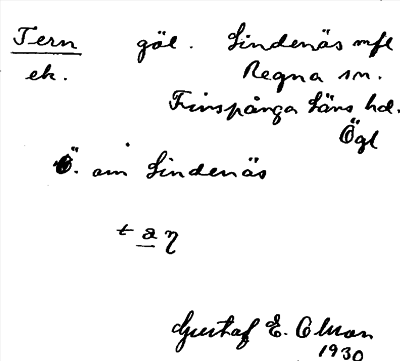 Tern göl. Lindenäs mfl
ek. Regna sn.
Finspånga läns hd.
Ögl
Ö. om Lindenäs
t a η
Gustaf E. Olson
1930